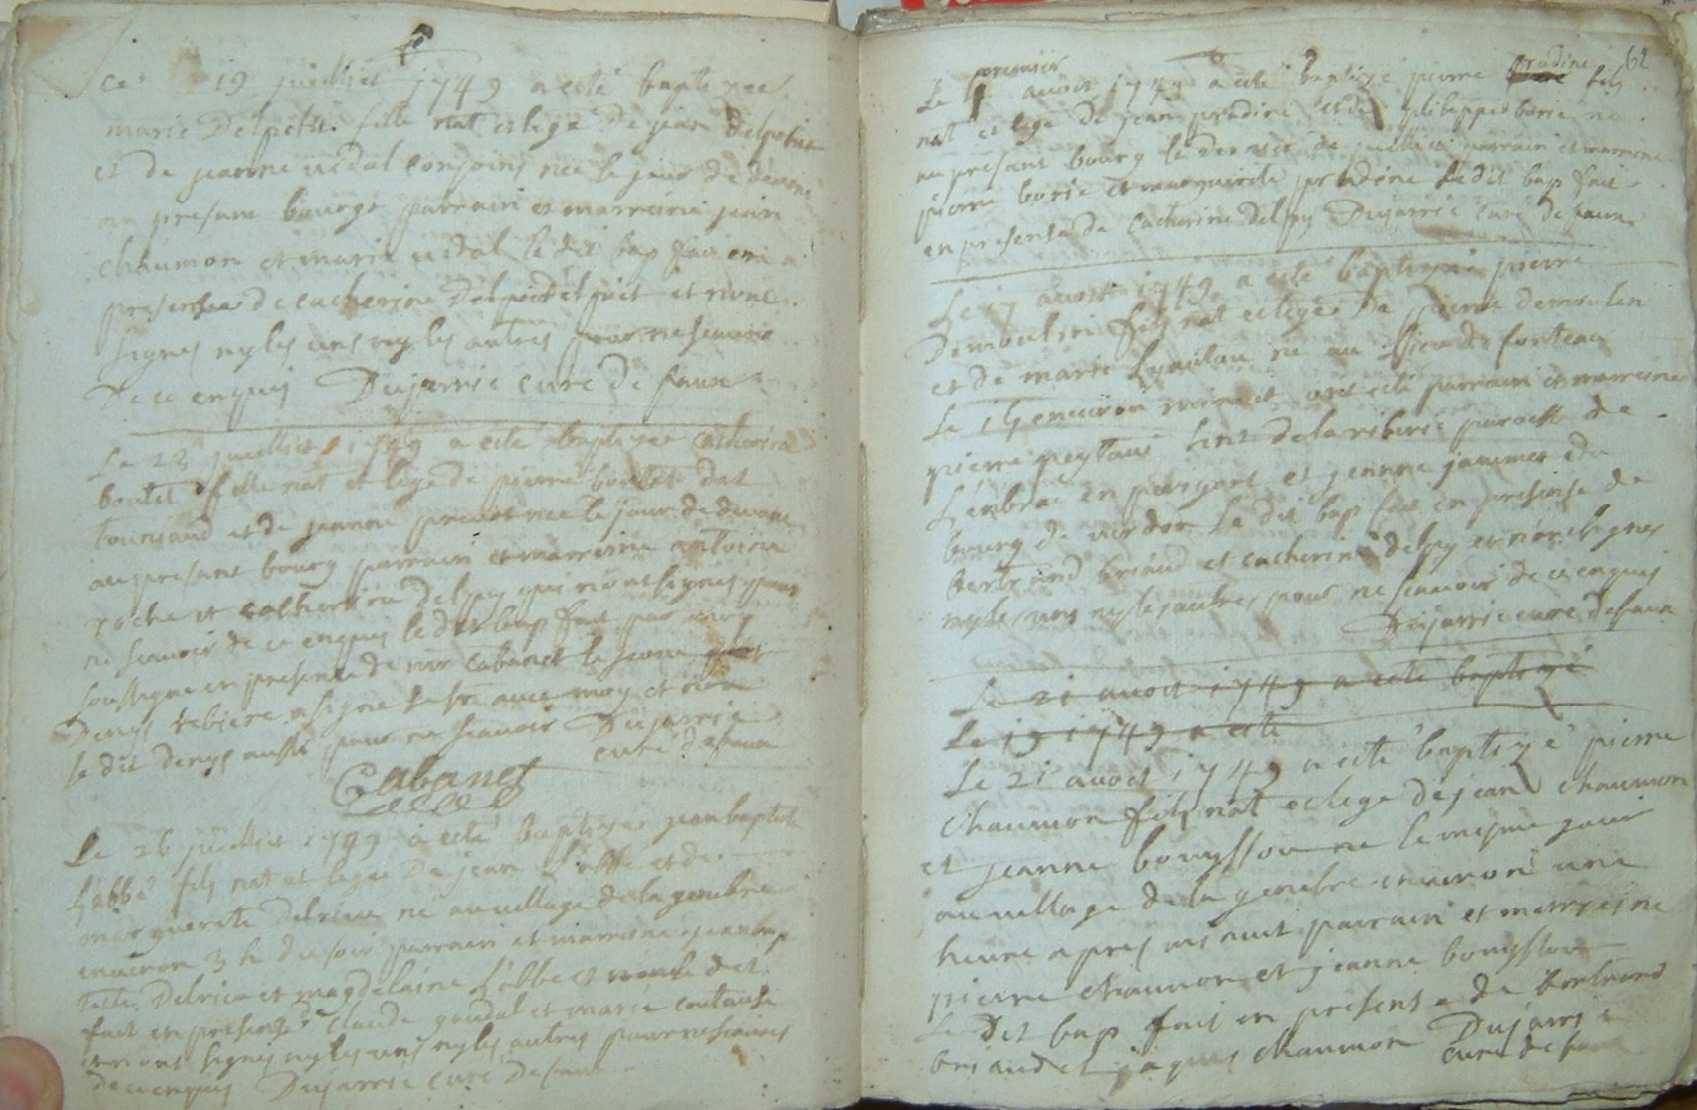 ce 19 juillet 1749 a esté baptizée
marie Delpetit fille nat et lege De jean delpetit
et de jeanne vidal conjoins née le jour de devant
au present bourg parrain et marreine jean
chaumon et marie vidal le dit bap fait en
presence de catherine Delpit et
signes ny les uns ny les autres pour ne scavoir
De ce enquis Dujarric curé De faux
Le 23 juillet 1749 a esté baptizée catherine
boutet fille nat et lege de pierre boutet dit
tournaud et de jeanne née le jour de devant
au present bourg parrain et marreine antoine
roche et catherine delpy qui n'ont signes pour
ne scavoir de ce enquis le dit bap fait par moy
soussigne en presence de mr cabanet le jeune
Denys a signe avec moy et non
le dit denys aussi pour ne scavoir Dujarric
curé de faux
Cabanet
Le 26 juillet 1749 a esté baptizé jean baptiste
Labbé fils nat et lege De jean Labbé et de
marguerite Delrieu né au village de la genebre
environ 3 h du soir parrain et marreine jean bap
tiste Delrieu et magdelaine Labbé
fait en presence de claude goudal et marie
et n'ont signes ny les uns ny les autres pour ne scavoir
de ce enquis Dujarric curé De faux
62
Le premier aoust 1749 a esté baptizé pierre pradine fils
nat et lege De jean pradine et de philippe borie né
au present bourg le dernier de juillet parrain et marreine
pierre borie et marguerite pradine le dit bap fait
en presense de catherine delpy Dujarric curé de faux
Le 17 aoust 1749 a esté baptizé pierre
Demoulin fils nat et lege De pierre demoulin
et de marie né au de fonteau
Le 16 environ minuit ont esté parrain et marreine
pierre peytavi de la riberie paroisse de
Lembras en perigort et jeanne jaumet du
bourg de verdon le dit bap fait en presense de
bertrand briaud et catherine delpy et n'ont signes
ny les uns ny les autres pour ne scavoir de ce enquis
Dujarric curé de faux
Le 21 avoct 1749 a esté baptizé
Le 19 1749 a esté
Le 21 avoct 1749 a esté baptizé pierre
chaumon fils nat et lege de jean chaumon
et jeanne bouyssou né le mesme jour
au village de la genebre environ une
heure apres minuit parrain et marreine
pierre chaumon et jeanne bouyssou
le Dit bap fait en presense de bertrand
briaud et jaques chaumon Dujarric
curé de faux